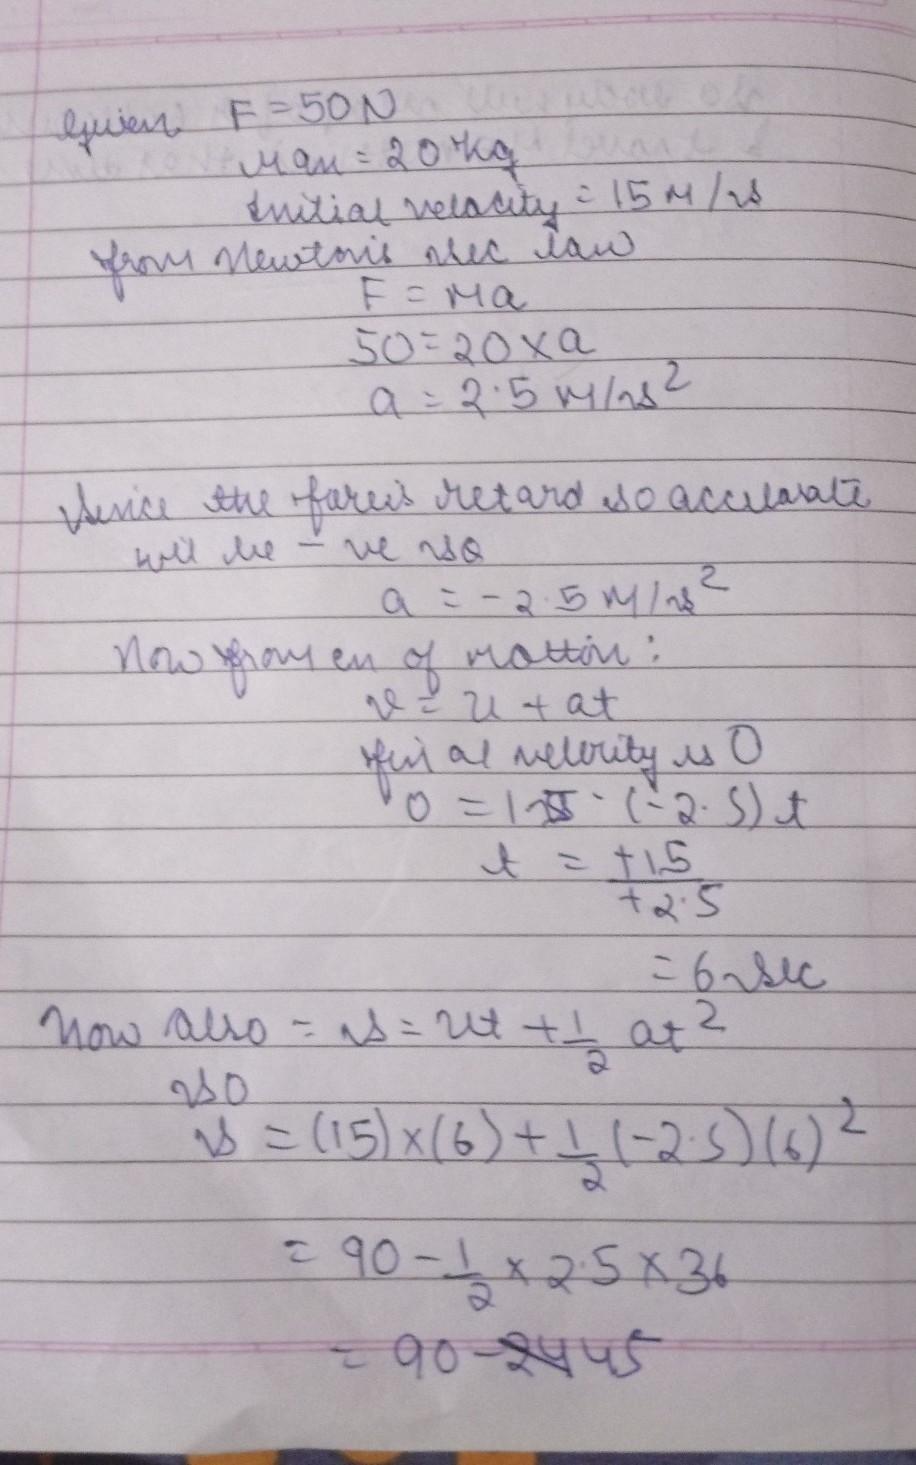 Given F = 50N
Mass = 20 kg
Initial velocity = 15 M/s
from Newton's sec law
F = Ma
50 = 20 x a
a = 2.5 M/s²
Since the force is retard so accelarate
will be - ve so
a = - 2.5 M/s²
Now from en of motion :
v = u + at
final velocity is 0
0 = 15 - (-2.5) t
t = +15 / +2.5
= 6 sec
Now also = s = ut + 1/2 at²
so
s = (15) x (6) + 1/2 (-2.5) (6)²
= 90 - 1/2 x 2.5 x 36
= 90 - 45